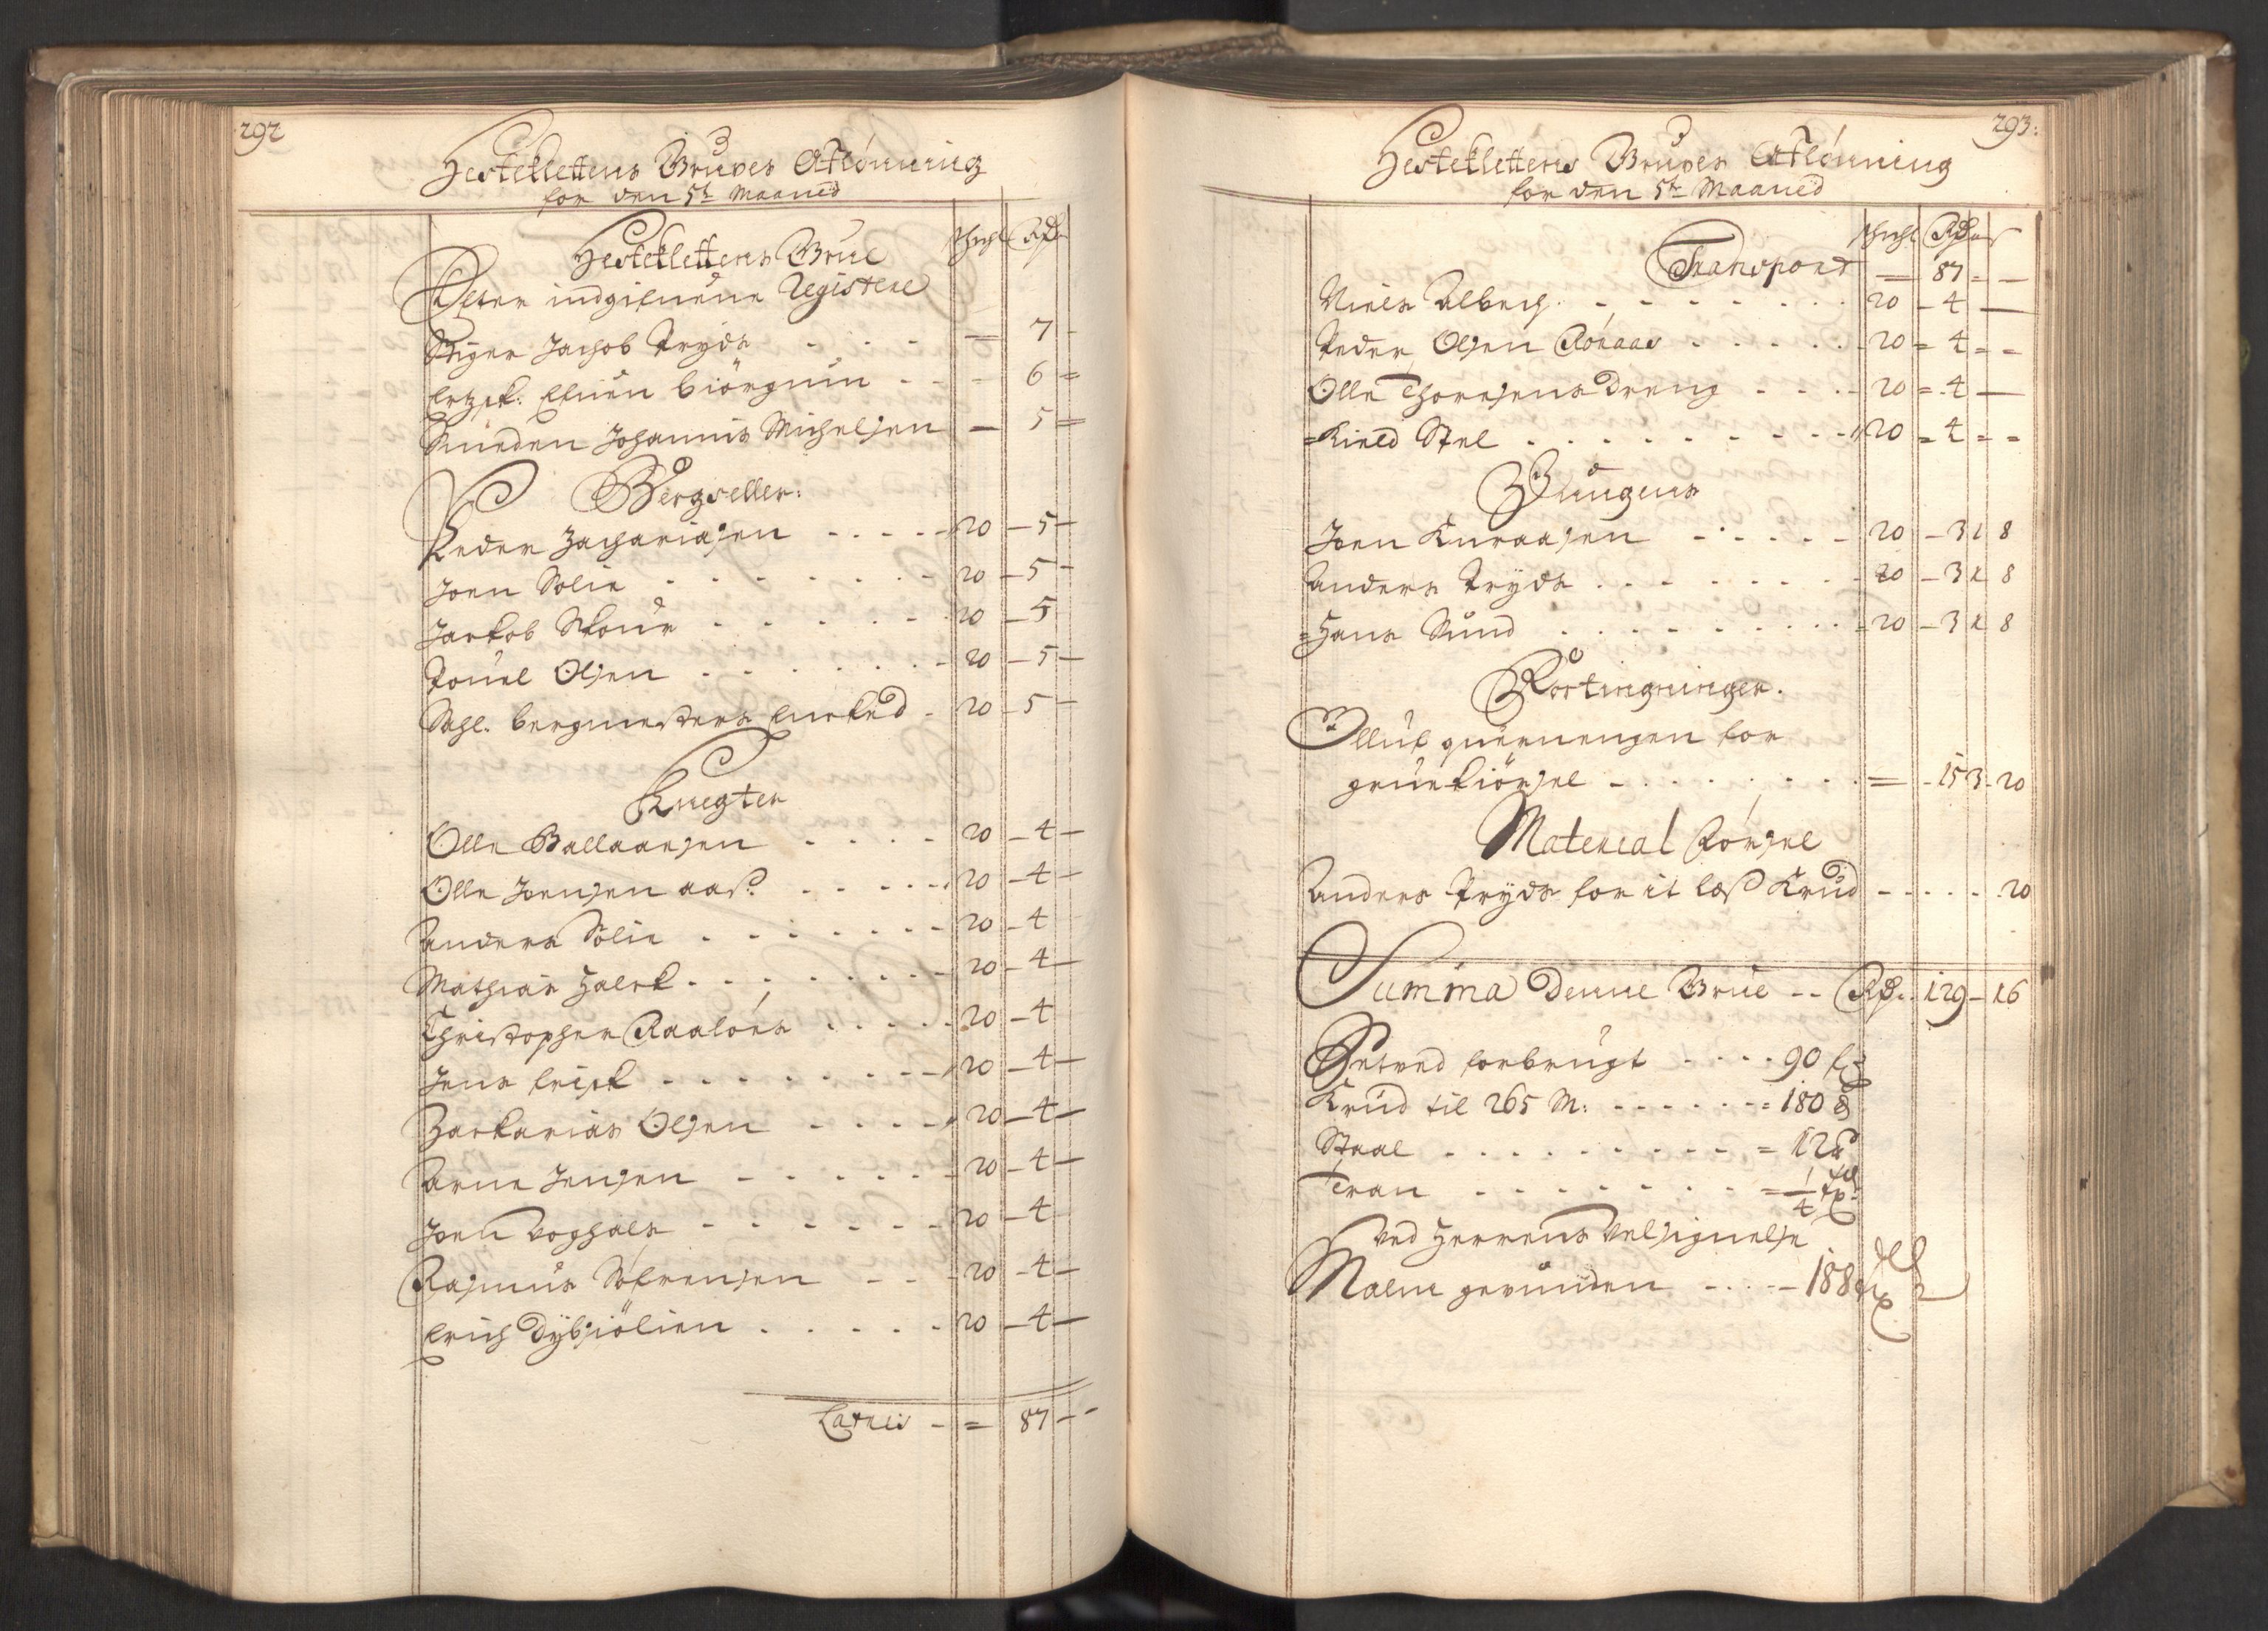 292
Hesteklettens Gruves Afflönning
for den 5te Maaned
Schicht Rdr
Hesteklettens Grue
Efter indgifuene Registere
Stiger Jachob Tryds - - - = 7 -
Ertzsk: Efuen biörgum - - - 6 =
Smeden Johannis Michelsen - 5 =
Bergseller:
Peder Zachariasen - - - - - 20 - 5 -
Joen Solie - - - - - - - 20 - 5 -
Jackob Skoue - - - - - - 20 - 5
Pouel Olsen - - - - - - 20 - 5 -
Sahl. bergmesters Encked - 20 - 5 -
Knegter
Olle Ballaarsen - - - - 20 - 4 -
Olle Joensen aas: - - - - - 20 - 4 -
Anders Solie - - - - - - - 20 - 4
Mathias Halck - - - - - - - 20 - 4 -
Christopher Raaloes - - - - - 20 - 4
Jens frisk - - - - - - - - 20 - 4 -
Zackarias Olsen - - - - - 20 - 4 -
Arne Jensen - - - - - - 20 - 4 -
Joen Voghals - - - - - - - 20 - 4
Rasmus Söfrensen - - - 20 - 4 -
Erich Dybsiölien - - - - - 20 - 4 -
Lateris - = 87 - -
293:
Hesteklettens Gruves Afflönning
for den 5te Maaned
Schicht Rdr s
Transport - 87 - -
Niels Albech - - - - - - - 20 - 4 -
Peder Olsen Röraas - - - - - 20 = 4 - -
Olle Thoresens Dreng - - - - 20 = 4 -
Kield Stel - - - - - - - - - 20 = 4 = =
Jungens
Joen Knraasen - - - - - 20 - 3 1 8
Anders Tryds - - - - - - - 20 - 3 1 8
Hans Sund - - - - - - - - - 20 - 3 1 8
Fortingninger.
Olluf quernengen for
gruekiörsel - - - - - - - = - 15 3 - 20
Material Körsel
Anders Tryds for it læs Krud - - - - - 20
Summa Denne Grue - - Rdr. 129 - 16
Setved forbrugt - - - - 90 f
Krud til 265 M: - - - - - - = 180 ℔
Staal - - - - - - - - - = 12 ℔
Tran - - - - - - - = 1/4 td
Ved Herrens Velsignelse
Malm gevunden - - - - 188